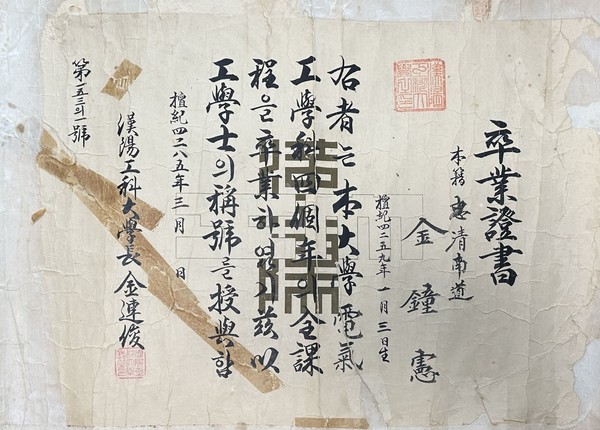 卒業證書
本籍 忠清南道
金鐘憲
檀紀四二五九年 一月 三日生
右者는本大學電氣
工學科四個年의全課
程을卒業하였기玆以
工學士의稱號를授與함
檀紀四二八五年三月 日
漢陽工科大學長 金連俊
第一五三의一號